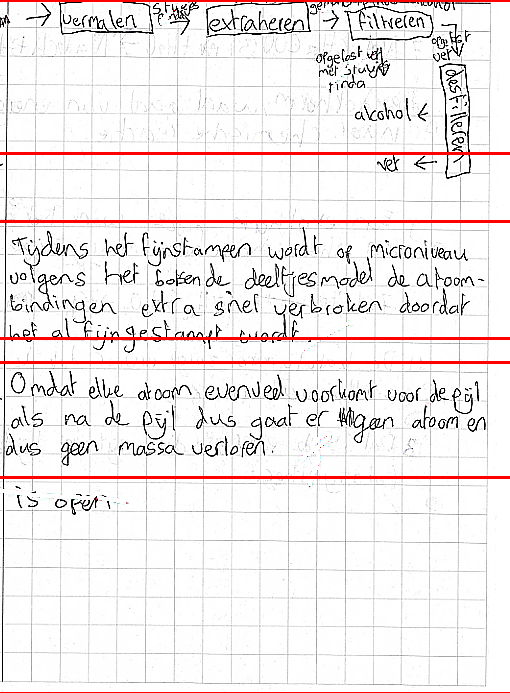 stukjes
→ vermalen → extraheren → filtreren
opgelost vet
met stukjes
rinda
opgelost
vet
destilleren
alcohol ←
vet ←
Tijdens het fijnstampen wordt op microniveau
volgens het botsende deeltjesmodel de atoom-
bindingen extra snel verbroken doordat
het al fijngestampt wordt.
Omdat elke atoom evenveel voorkomt voor de pijl
als na de pijl dus gaat er geen atoom en
dus geen massa verloren.
is